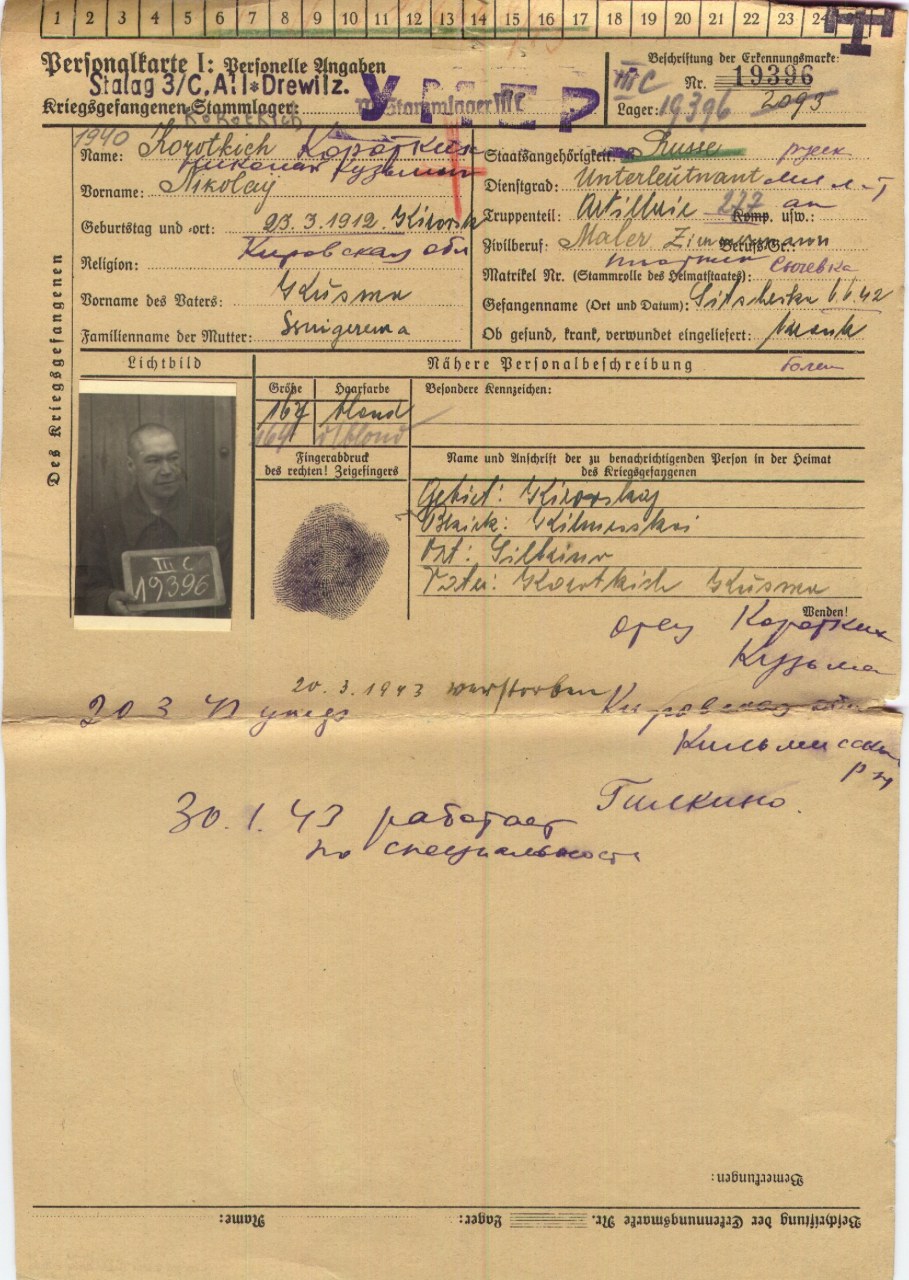 1 2 3 4 5 6 7 8 9 10 11 12 13 14 15 16 17 18 19 20 21 22 23 24
Personalkarte I: Personelle Angaben
Beschriftung der Erkennungsmarke:
Stalag 3/C, Alt-Drewitz.
УМЕР
III C Nr. 19396
Kriegsgefangenen-Stammlager: Stammlager III C
Lager: 19396 2093
Korotkich
1940
Name: Korotkich Коротких
Staatsangehörigkeit: Russe русск
Николай Кузьмич
Vorname: Nikolaj
Dienstgrad: Unterleutnant мл л-т
Geburtstag und -ort: 23.3.1912. Kirowsk
Truppenteil: Artillerie 277 ап Komp. usw.:
Кировская обл
Zivilberuf: Maler Zimmermann Berufs-Gr.:
Religion:
плотник
Matrikel Nr. (Stammrolle des Heimatstaates): Сычевка
Vorname des Vaters: Kusma
Gefangenname (Ort und Datum): Sitschewka 6.6.42
Familienname der Mutter:
Ob gesund, krank, verwundet eingeliefert: krank
Des Kriegsgefangenen
Lichtbild
Nähere Personalbeschreibung болен
Größe Haarfarbe Besondere Kennzeichen:
167 blond
164 d/blond
Fingerabdruck
des rechten! Zeigefingers
Name und Anschrift der zu benachrichtigenden Person in der Heimat
des Kriegsgefangenen
Gebiet: Kirowskaj
Bezirk: Kilmesski
Ort: Gilkino
Vater: Korotkich Kusma
III C
19396
Wenden!
отец Коротких
Кузьма
20.3.1943 verstorben
20 3 43 умер
Кировская обл
Кильмесский
р-н
Гилкино.
30.1.43 работает
по специальности
Bemerkungen:
Beschriftung der Erkennungsmarke Nr. Lager: Name: